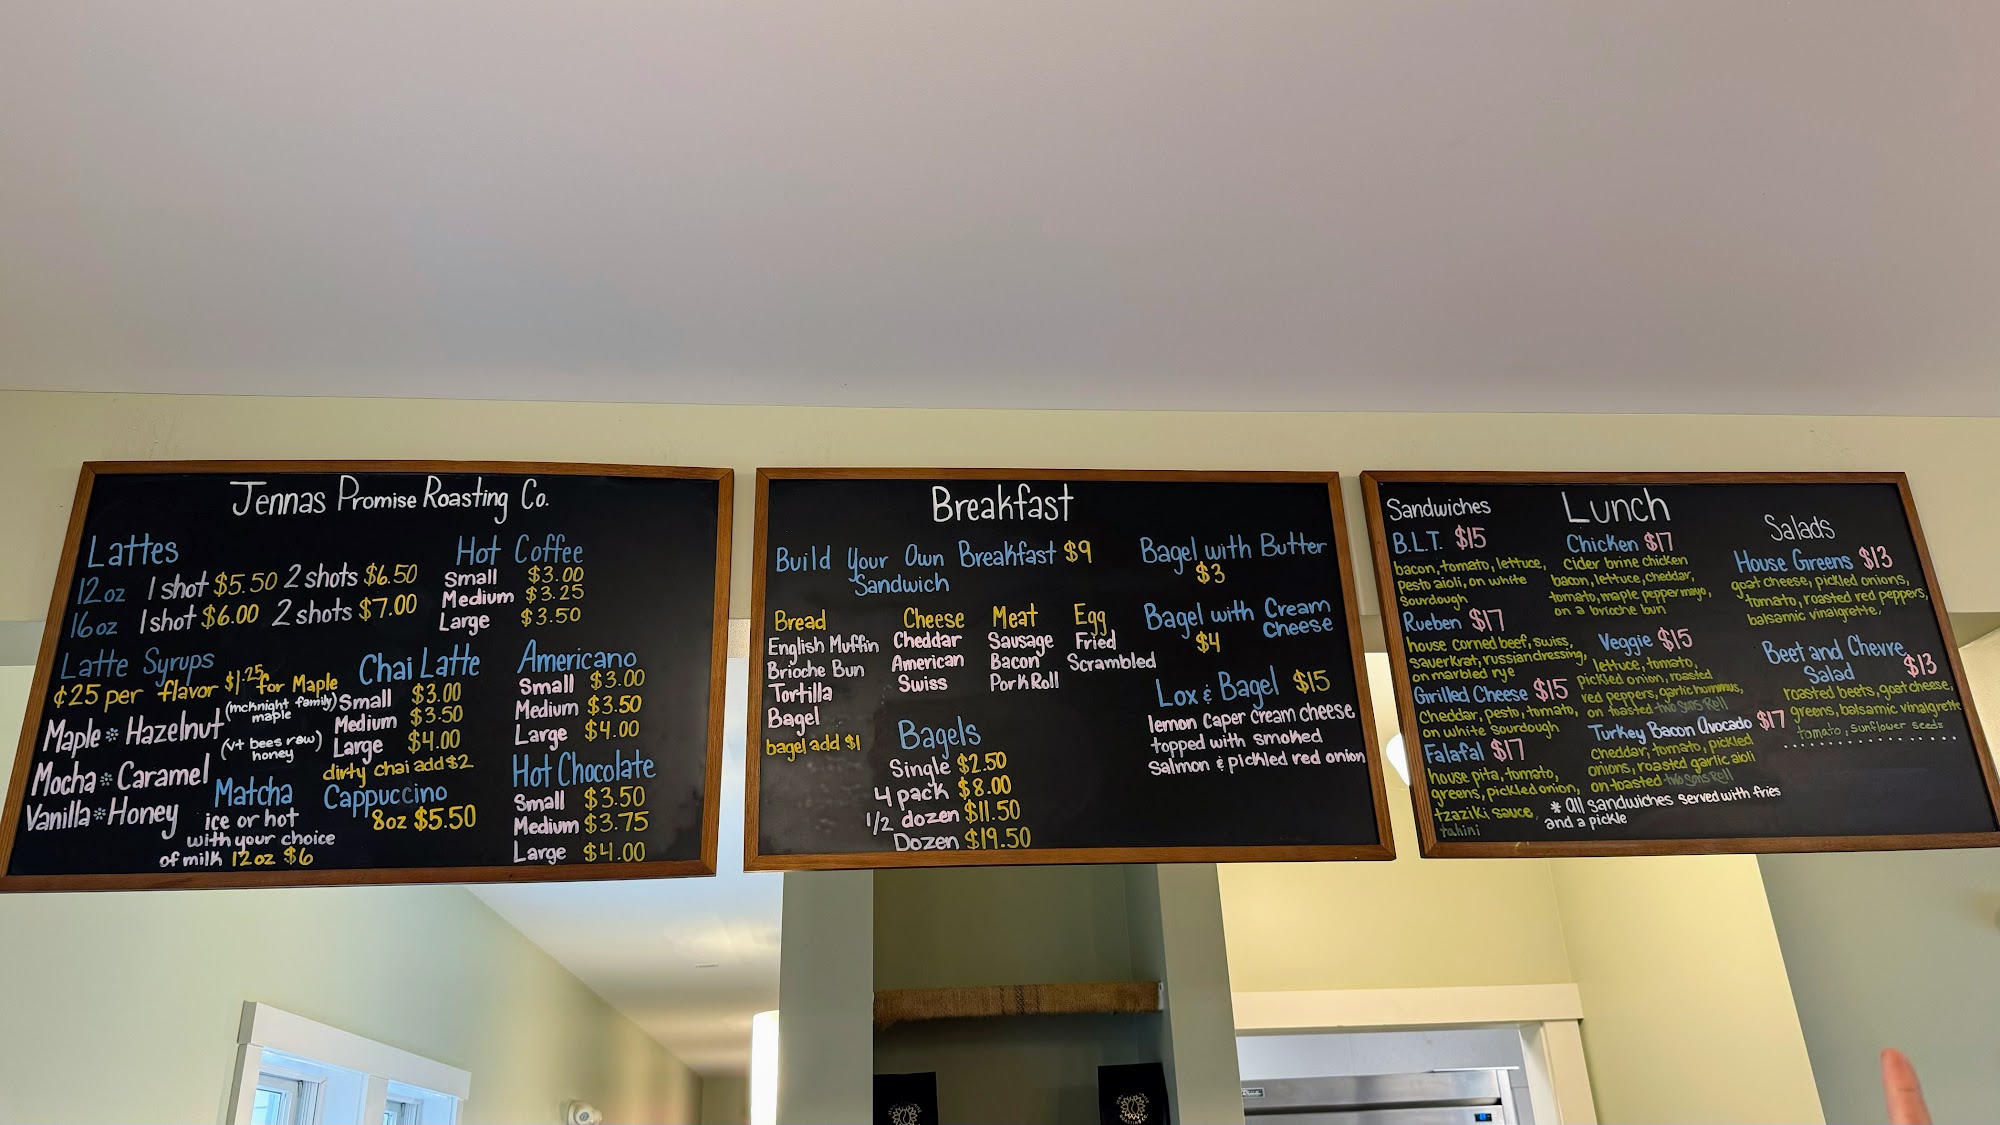 Jennas Promise Roasting Co.
Lattes
12oz 1 shot $5.50 2 shots $6.50
16oz 1 shot $6.00 2 shots $7.00
Latte Syrups
¢25 per flavor $1.25 for Maple
(mcknight family)
maple
Maple * Hazelnut
(vt bees raw)
honey
Mocha * Caramel
Vanilla * Honey
Matcha
ice or hot
with your choice
of milk 12oz $6
Hot Coffee
Small $3.00
Medium $3.25
Large $3.50
Chai Latte
Small $3.00
Medium $3.50
Large $4.00
dirty chai add $2
Cappuccino
8oz $5.50
Americano
Small $3.00
Medium $3.50
Large $4.00
Hot Chocolate
Small $3.50
Medium $3.75
Large $4.00
Breakfast
Build Your Own Breakfast $9
Sandwich
Bread
English Muffin
Brioche Bun
Tortilla
Bagel
bagel add $1
Cheese
Cheddar
American
Swiss
Meat
Sausage
Bacon
Pork Roll
Egg
Fried
Scrambled
Bagels
Single $2.50
4 pack $8.00
1/2 dozen $11.50
Dozen $19.50
Bagel with Butter
$3
Bagel with Cream
Cheese
$4
Lox & Bagel $15
lemon caper cream cheese
topped with smoked
Salmon & pickled red onion
Lunch
Sandwiches
B.L.T. $15
bacon, tomato, lettuce,
pesto aioli, on white
sourdough
Rueben $17
house corned beef, swiss,
sauerkrat, russian dressing,
on marbled rye
Grilled Cheese $15
Cheddar, pesto, tomato,
on white sourdough
Falafal $17
house pita, tomato,
greens, pickled onion,
tzaziki sauce,
tahini
Chicken $17
cider brine chicken
bacon, lettuce, cheddar,
tomato, maple pepper mayo,
on a brioche bun
Veggie $15
lettuce, tomato,
pickled onion, roasted
red peppers, garlic hummus,
on toasted two sons Roll
Turkey Bacon Avocado $17
cheddar, tomato, pickled
onions, roasted garlic aioli
on toasted two sons Roll
* all sandwiches served with fries
and a pickle
Salads
House Greens $13
goat cheese, pickled onions,
tomato, roasted red peppers,
balsamic vinaigrette,
Beet and Chevre
Salad $13
roasted beets, goat cheese,
greens, balsamic vinaigrette
tomato, sunflower seeds